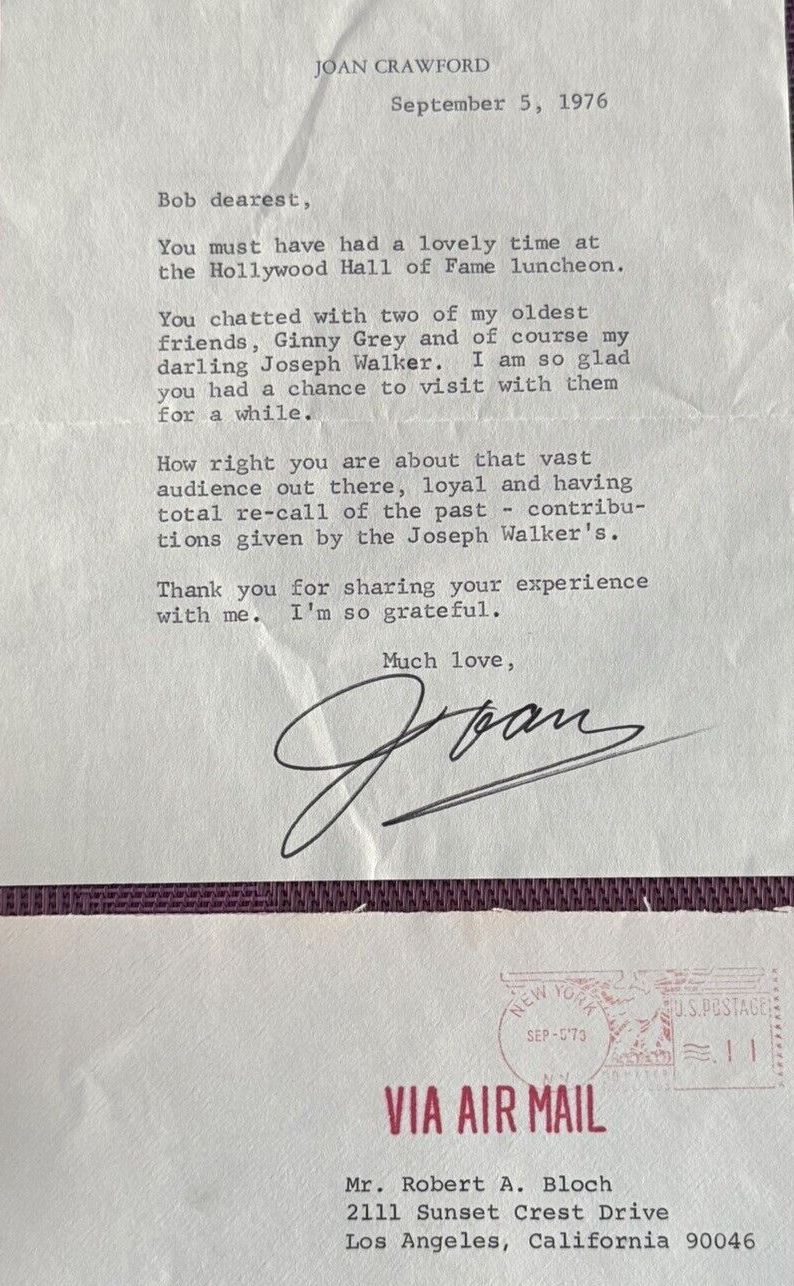 JOAN CRAWFORD
September 5, 1976
Bob dearest,
You must have had a lovely time at
the Hollywood Hall of Fame luncheon.
You chatted with two of my oldest
friends, Ginny Grey and of course my
darling Joseph Walker. I am so glad
you had a chance to visit with them
for a while.
How right you are about that vast
audience out there, loyal and having
total re-call of the past - contribu-
tions given by the Joseph Walker's.
Thank you for sharing your experience
with me. I'm so grateful.
Much love,
Joan
NEW YORK
SEP-5'73
N.Y.
U.S. POSTAGE
.11
VIA AIR MAIL
Mr. Robert A. Bloch
2111 Sunset Crest Drive
Los Angeles, California 90046